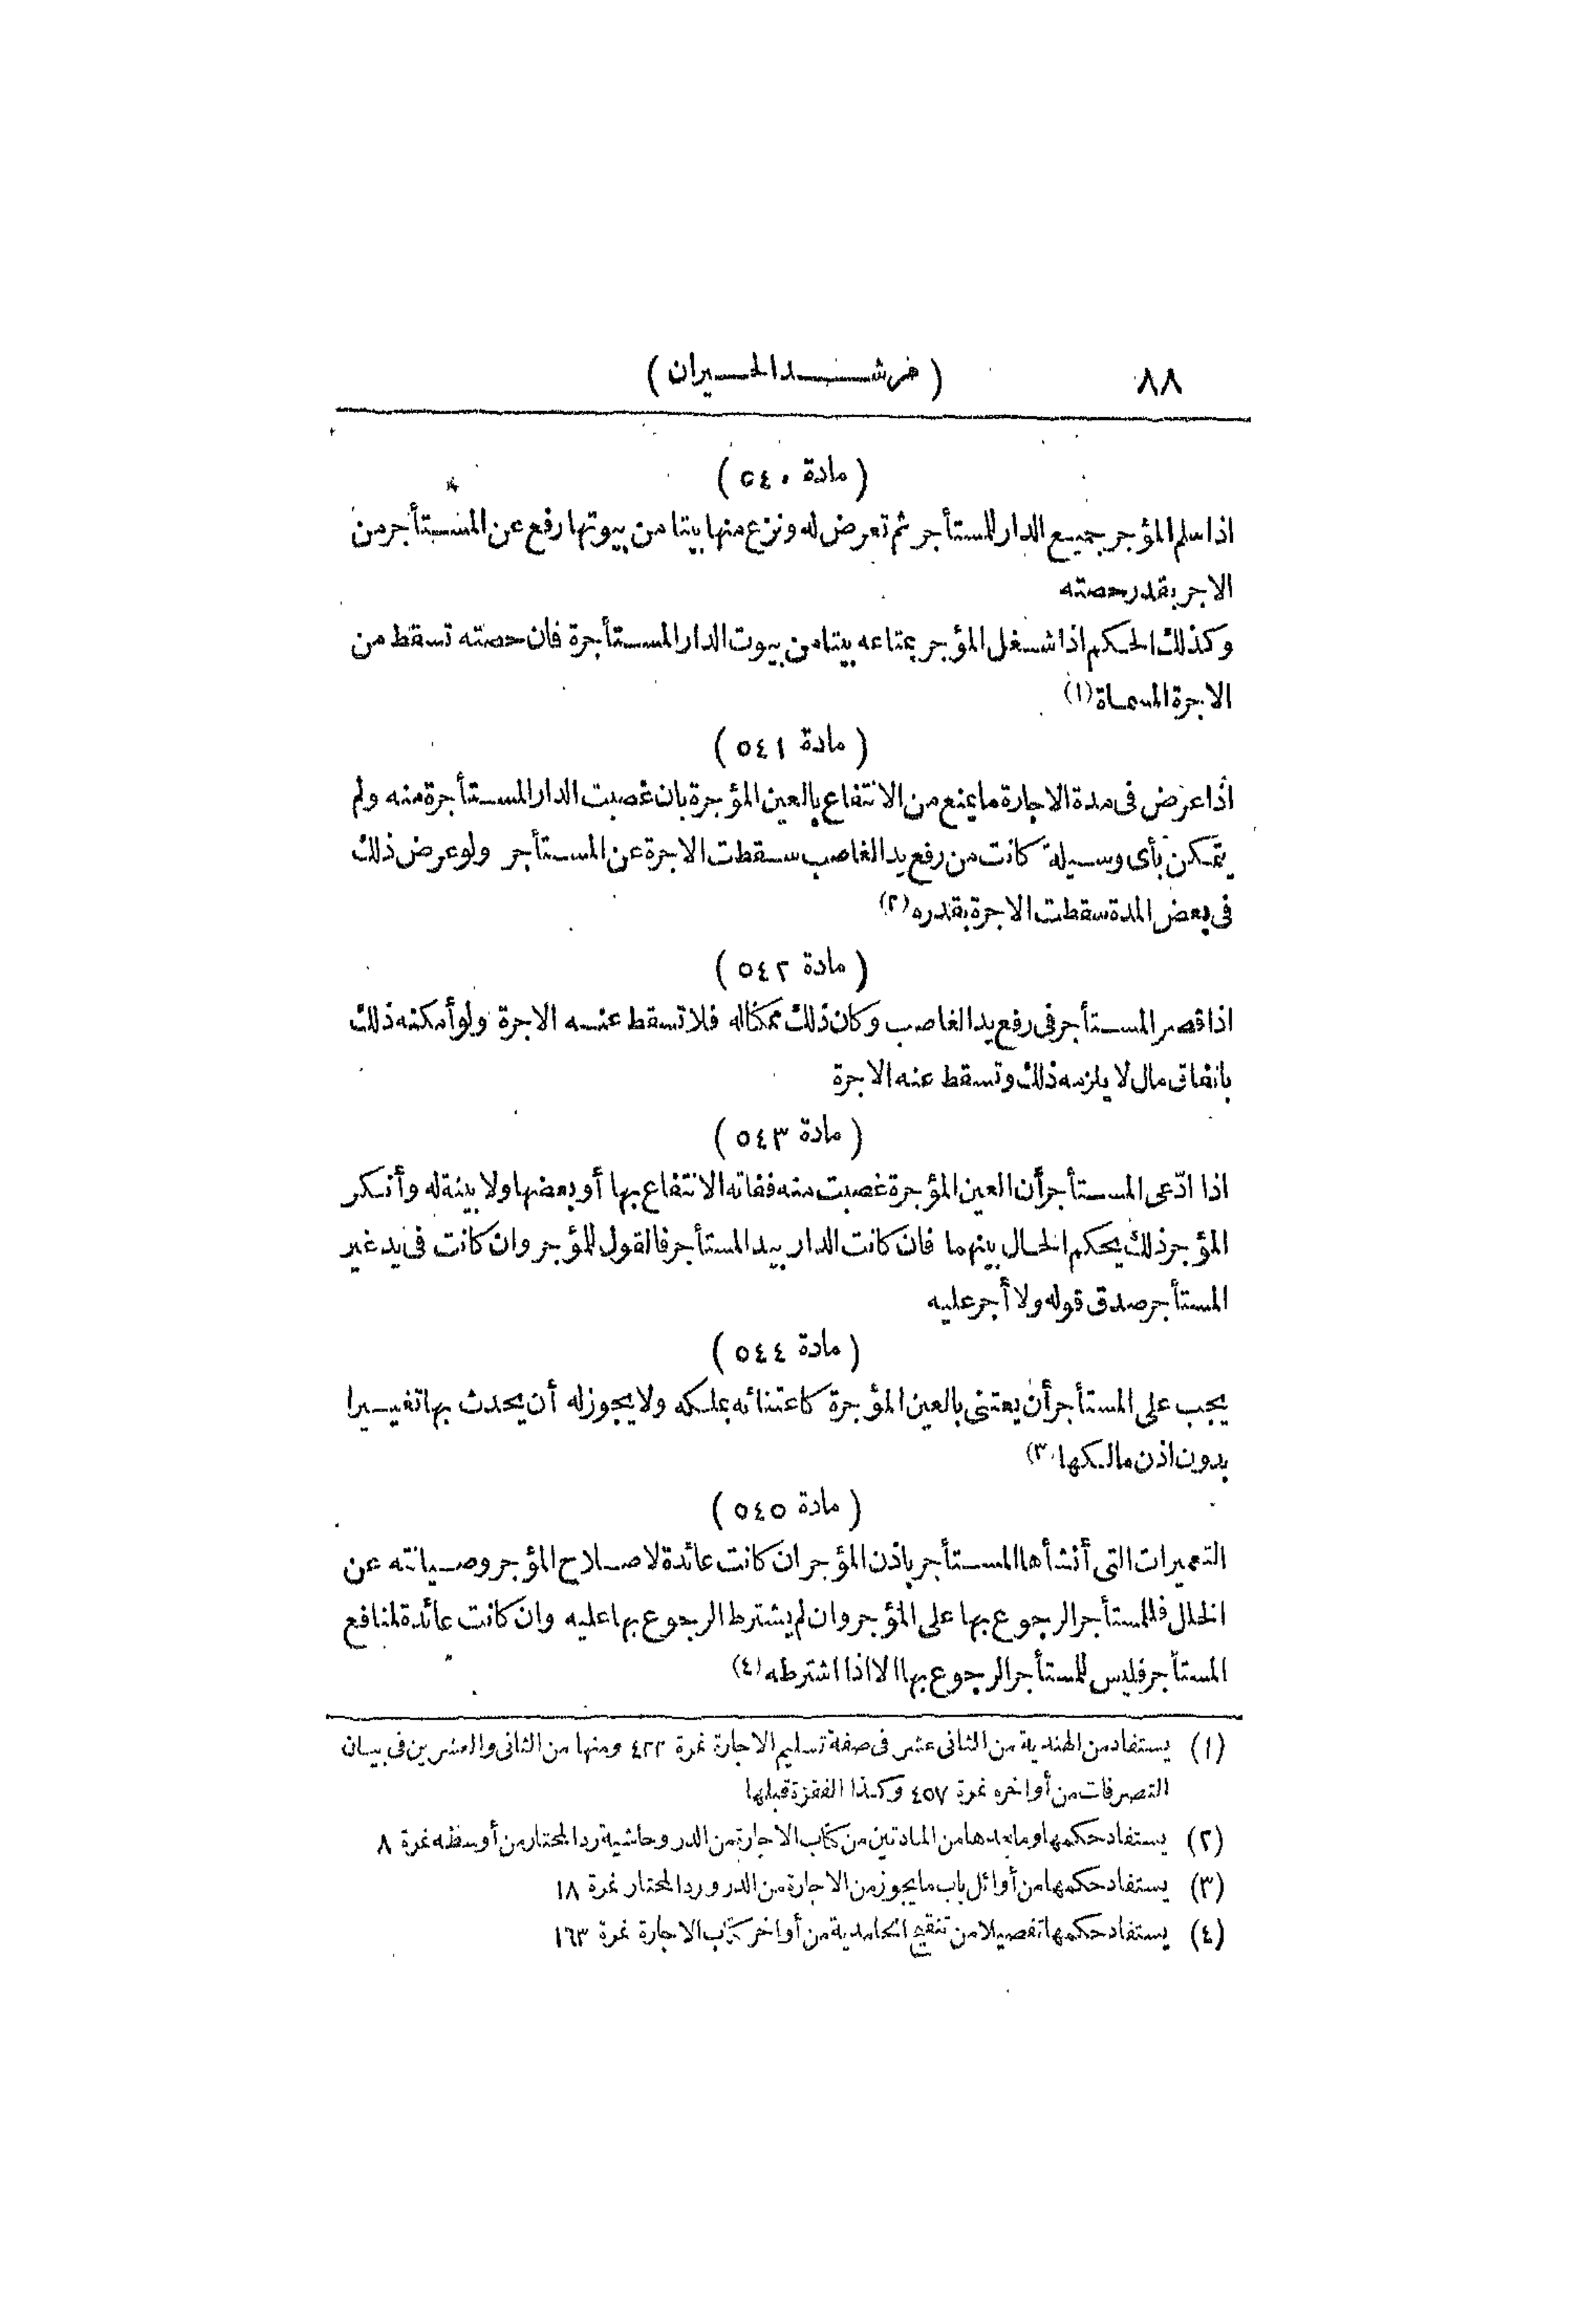 ٨٨ (مرشد الحيران)
(مادة ٥٤٠)
اذا سلم المؤجر جميع الدار للمستأجر ثم تعرض له ونزع منها بيتا من بيوتها رفع عن المستأجر من
الاجر بقدر حصته
وكذلك الحكم اذا شغل المؤجر بمتاعه بيتا من بيوت الدار المستأجرة فان حصته تسقط من
الاجرة المسماة (١)
(مادة ٥٤١)
اذا عرض فى مدة الاجارة ما يمنع من الانتفاع بالعين المؤجرة بان غصبت الدار المستأجرة منه ولم
يتمكن بأى وسيلة كانت من رفع يد الغاصب سقطت الاجرة عن المستأجر ولو عرض ذلك
فى بعض المدة سقطت الاجرة بقدره (٢)
(مادة ٥٤٢)
اذا قصر المستأجر فى رفع يد الغاصب وكان ذلك ممكنا له فلا تسقط عنه الاجرة ولو أمكنه ذلك
بانفاق مال لا يلزمه ذلك وتسقط عنه الاجرة
(مادة ٥٤٣)
اذا ادّعى المستأجر أن العين المؤجرة غصبت منه ففاته الانتفاع بها أو بعضها ولا بينة له وأنكر
المؤجر ذلك يحكم الحال بينهما فان كانت الدار بيد المستأجر فالقول للمؤجر وان كانت فى يد غير
المستأجر صدق قوله ولا أجر عليه
(مادة ٥٤٤)
يجب على المستأجر أن يعتنى بالعين المؤجرة كاعتنائه بملكه ولا يجوز له أن يحدث بها تغييرا
بدون اذن مالكها (٣)
(مادة ٥٤٥)
التعميرات التى أنشأها المستأجر باذن المؤجر ان كانت عائدة لاصلاح المؤجر وصيانته عن
الخلل فللمستأجر الرجوع بها على المؤجر وان لم يشترط الرجوع بها عليه وان كانت عائدة لمنافع
المستأجر فليس للمستأجر الرجوع بها الا اذا اشترطه (٤)
(١) يستفاد من الهندية من الثانى عشر فى صفة تسليم الاجارة نمرة ٤٢٢ ومنها من الثانى والعشرين فى بيان
التصرفات من أواخره نمرة ٤٥٧ وكذا الفقرة قبلها
(٢) يستفاد حكمها وما بعدها من المادتين من كتاب الاجارة من الدر وحاشية رد المحتار من أوسطه نمرة ٨
(٣) يستفاد حكمها من أوائل باب ما يجوز من الاجارة من الدر ورد المحتار نمرة ١٨
(٤) يستفاد حكمها تفصيلا من تنقيح الحامدية من أواخر كتاب الاجارة نمرة ١٦٣